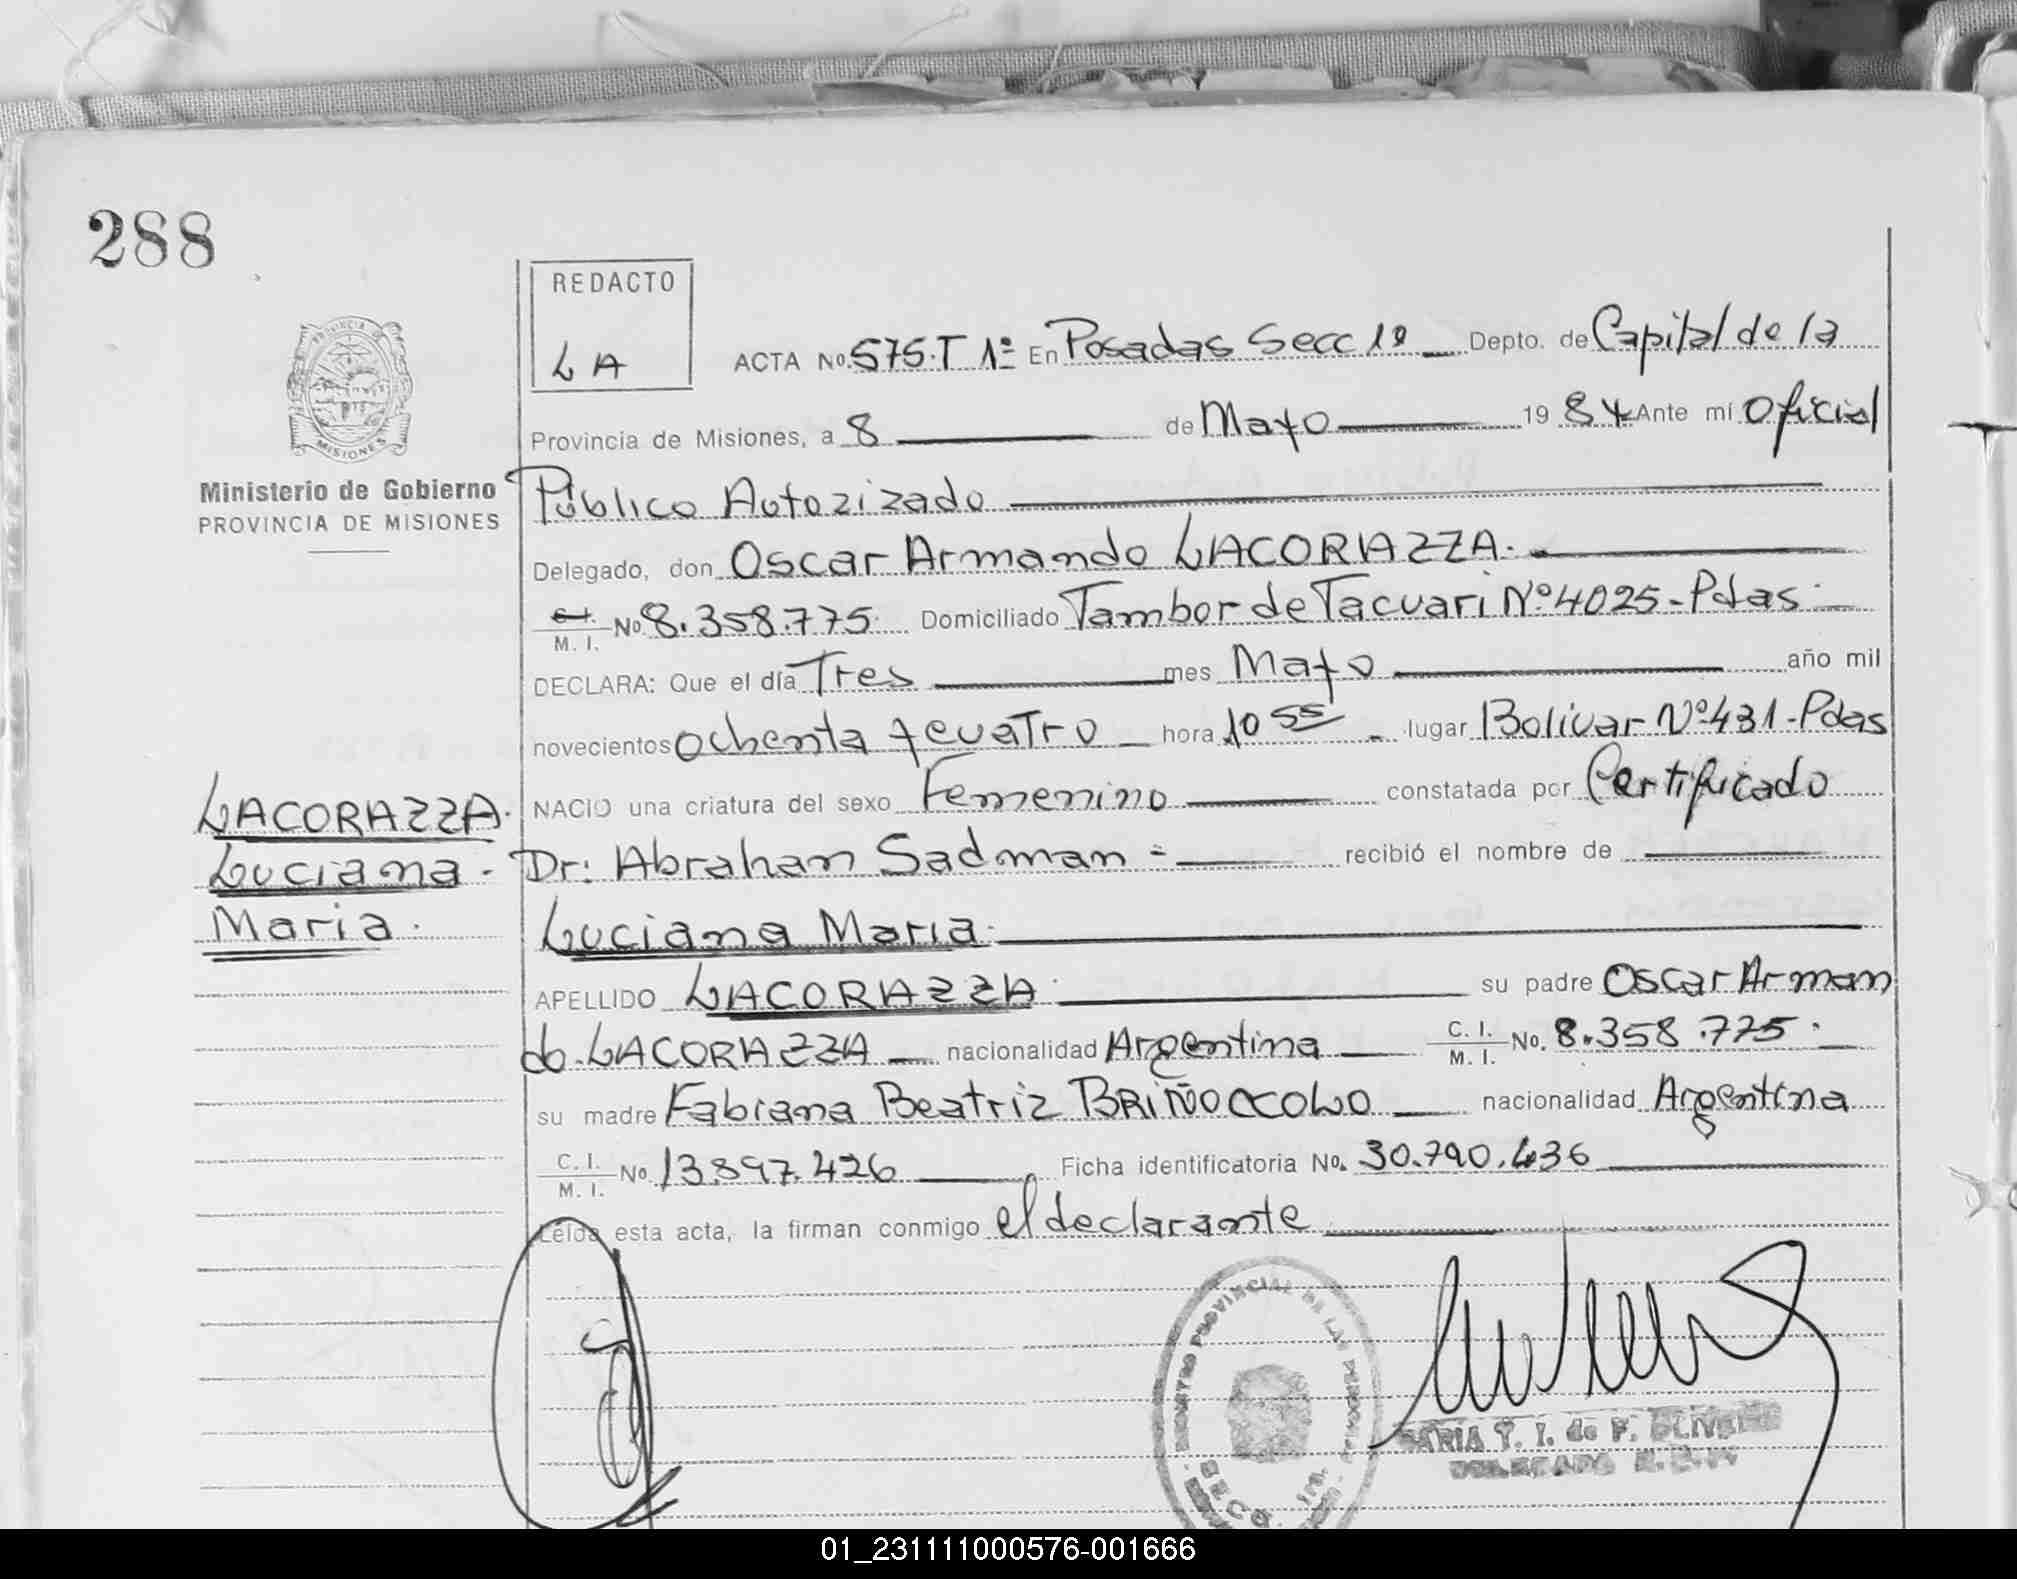 288
REDACTO
LA
ACTA No. 575.T 1º En Posadas Secc 1º Depto. de Capital de la
Provincia de Misiones, a 8 de Mayo 1984 Ante mí Oficial
PROVINCIA DE
MISIONES
Ministerio de Gobierno
PROVINCIA DE MISIONES
Público Autorizado
Delegado, don Oscar Armando LACORAZZA.
C.I. M. I. No 8.358.775. Domiciliado Tambor de Tacuari Nº 4025-Pdas.
DECLARA: Que el día Tres mes Mayo año mil
novecientos ochenta y cuatro hora 10 55 lugar Bolivar Nº 431-Pdas
NACIO una criatura del sexo Femenino constatada por Certificado
LACORAZZA.
Luciana.
Maria.
Dr: Abrahan Sadman - recibió el nombre de
Luciana Maria.
APELLIDO LACORAZZA su padre Oscar Arman
do. LACORAZZA nacionalidad Argentina C. I. M. I. No. 8.358.775.
su madre Fabiana Beatriz BRIÑOCCOLO nacionalidad Argentina
C. I. M. I. No. 13.897.426 Ficha identificatoria No. 30.790.436
Leída esta acta, la firman conmigo el declarante
REGISTRO PROVINCIAL DE LAS PERSONAS
MARIA T. I. de F.
DELEGADO
01_231111000576-001666